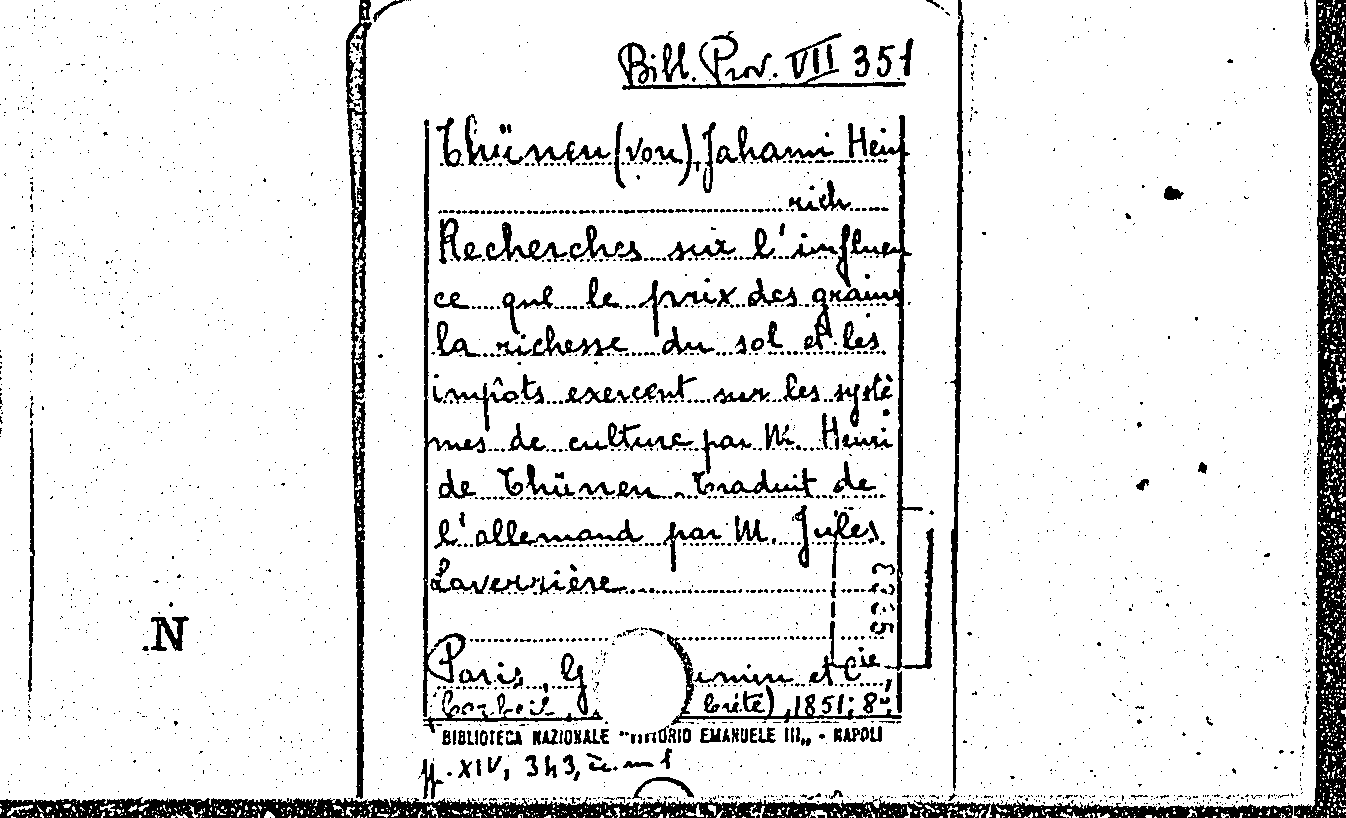 Bibl. Prov. VII 351
Thünen (von), Johann Hein
rich
Recherches sur l'influen
ce que le prix des grains
la richesse du sol et les
impôts exercent sur les systè
mes de culture par M. Henri
de Thünen. Traduit de
l'allemand par M. Jules
Laverrière
Paris, G umin et Cie,
(Corbeil, Crété), 1851; 8°,
BIBLIOTECA NAZIONALE "VITTORIO EMANUELE III„ - NAPOLI
pp. XIV, 343,
N